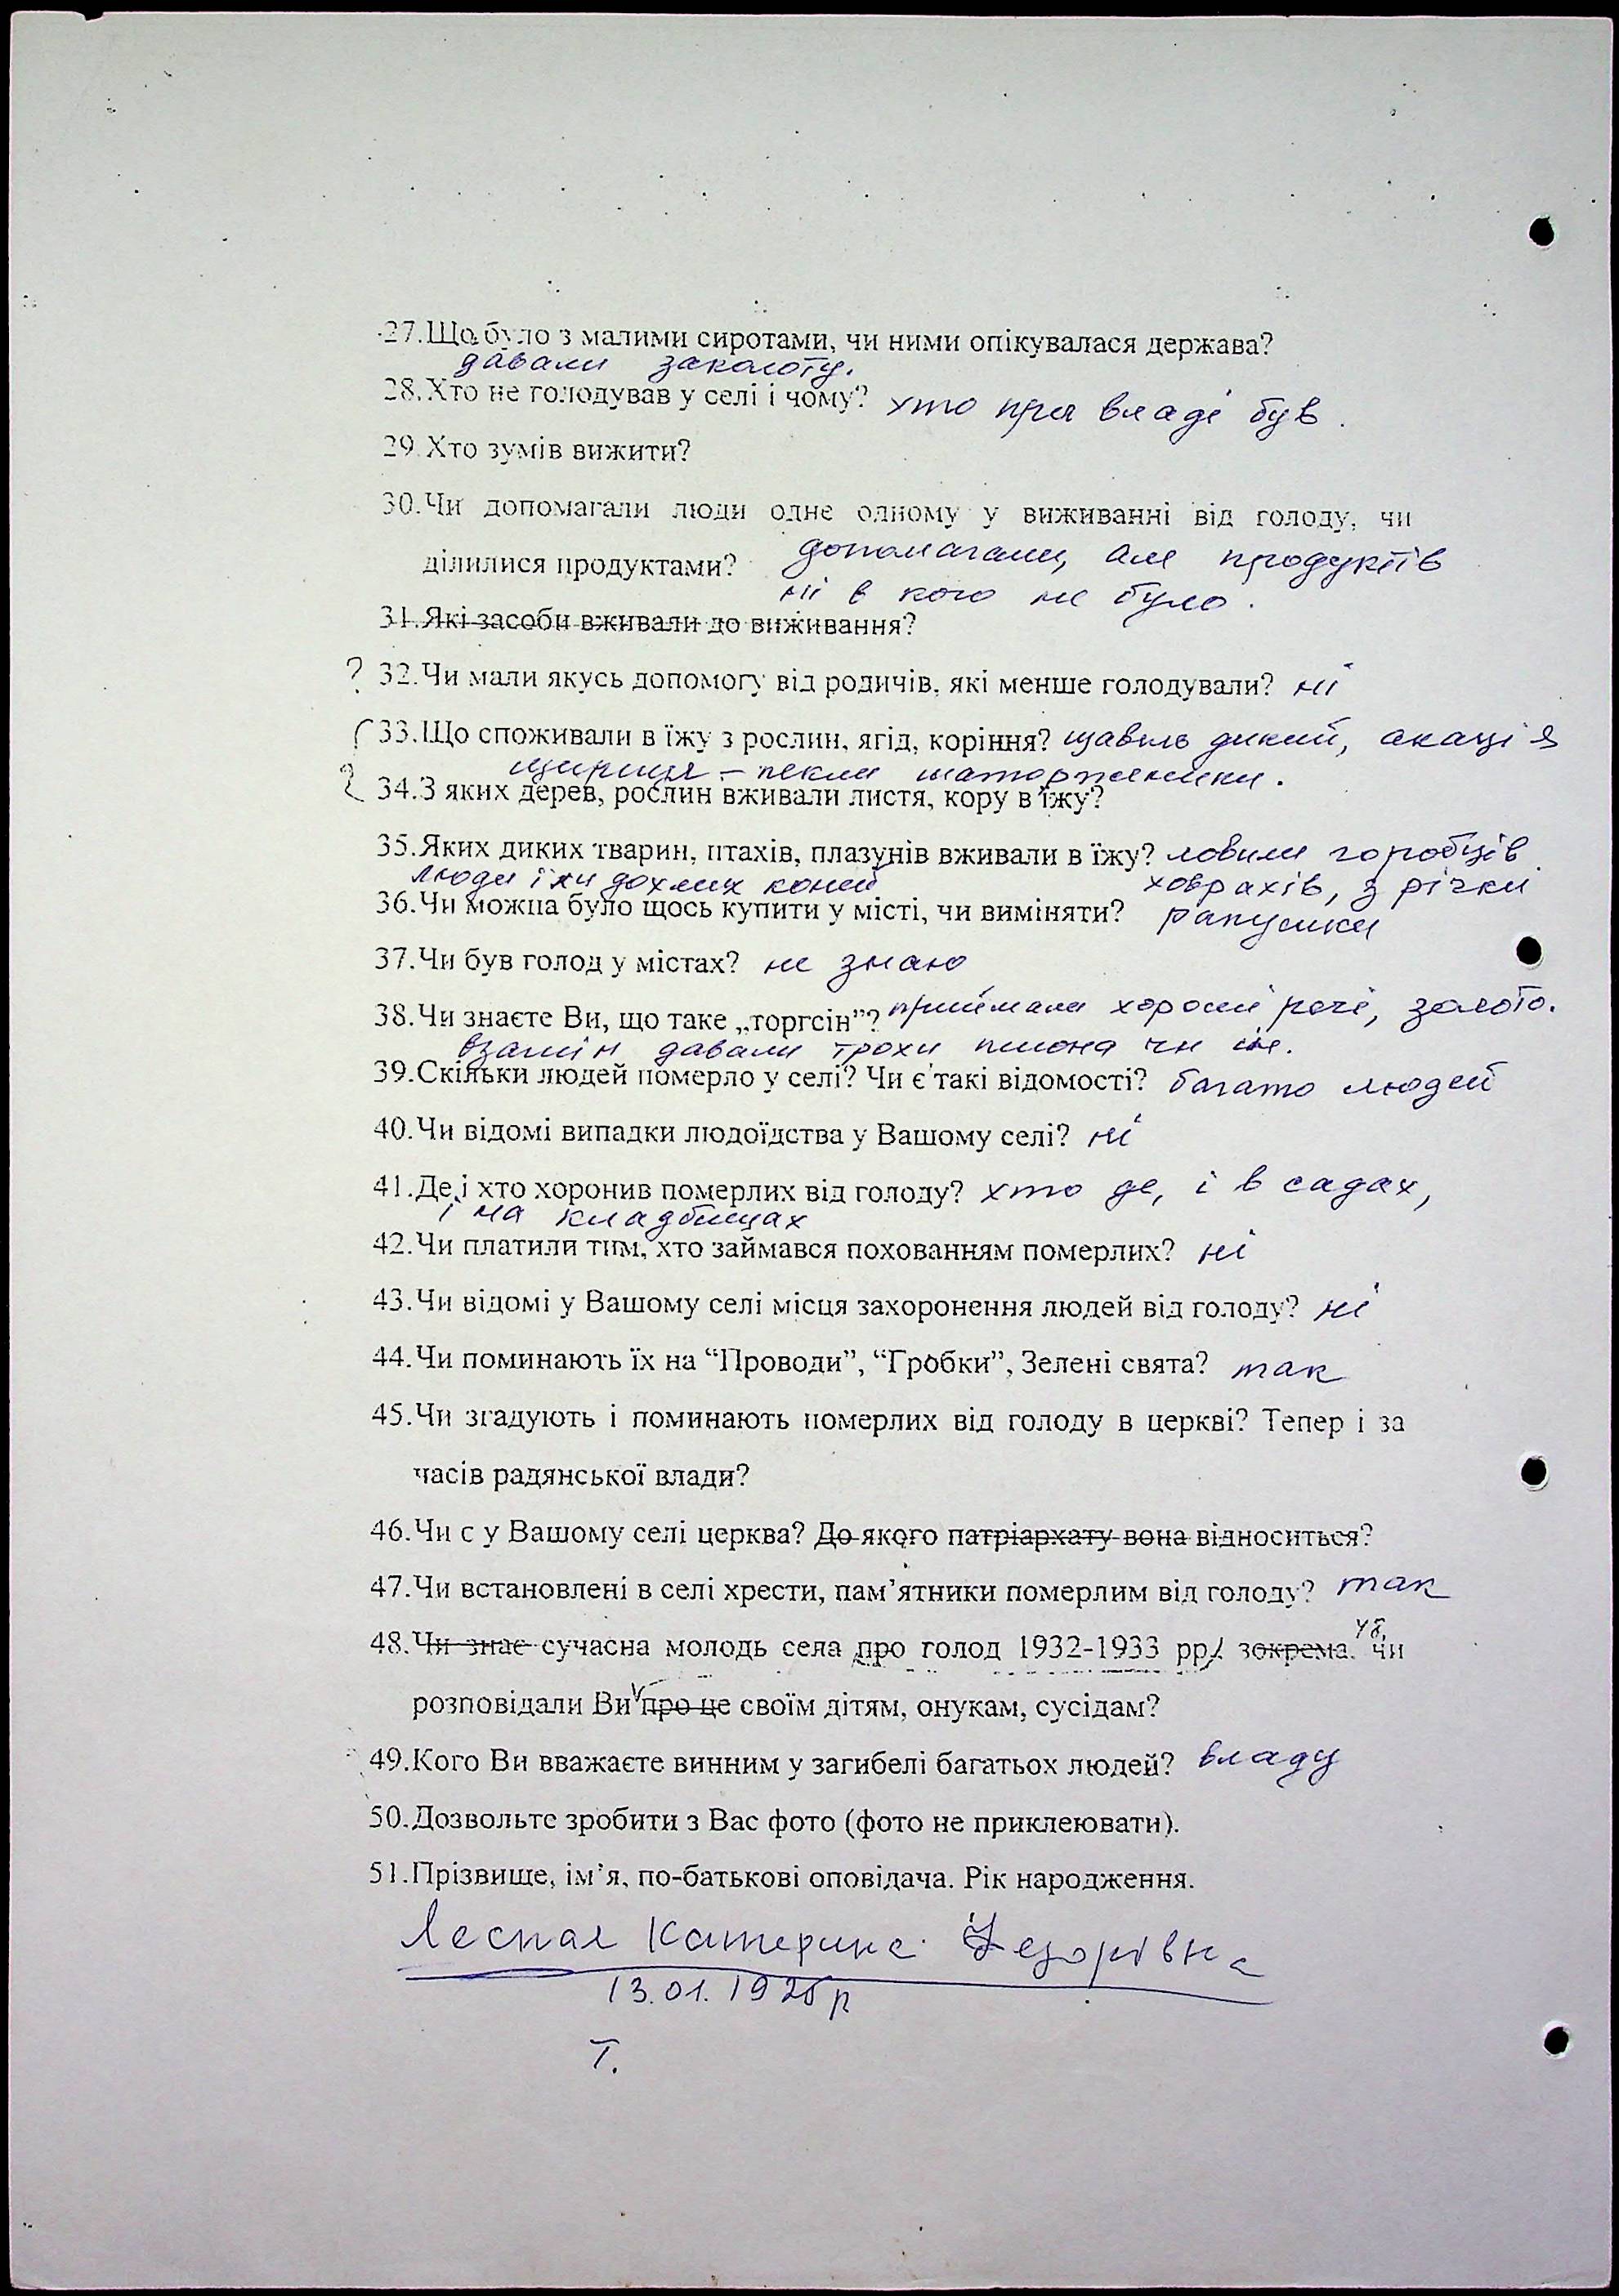 27.Що було з малими сиротами, чи ними опікувалася держава?
давали
28.Хто не голодував у селі і чому? хто при владі був.
29.Хто зумів вижити?
30.Чи допомагали люди одне одному у виживанні від голоду, чи
ділилися продуктами? допомагали, але продуктів
ні в кого не було.
31.Які засоби вживали до виживання?
? 32.Чи мали якусь допомогу від родичів, які менше голодували? ні
33.Що споживали в їжу з рослин, ягід, коріння? щавель дикий, акація
щириця – пекли маторженики.
34.З яких дерев, рослин вживали листя, кору в їжу?
35.Яких диких тварин, птахів, плазунів вживали в їжу? ловили горобців
люди їли дохлих коней ховрахів, з річки
36.Чи можна було щось купити у місті, чи виміняти? рапушки
37.Чи був голод у містах? не знаю
38.Чи знаєте Ви, що таке „торгсін”? приймали хороші речі, золото.
взамін давали трохи пшона чи
39.Скільки людей померло у селі? Чи є такі відомості? багато людей
40.Чи відомі випадки людоїдства у Вашому селі? ні
41.Де і хто хоронив померлих від голоду? хто де, і в садах,
і на кладбищах
42.Чи платили тим, хто займався похованням померлих? ні
43.Чи відомі у Вашому селі місця захоронення людей від голоду? ні
44.Чи поминають їх на “Проводи”, “Гробки”, Зелені свята? так
45.Чи згадують і поминають померлих від голоду в церкві? Тепер і за
часів радянської влади?
46.Чи є у Вашому селі церква? До якого патріархату вона відноситься?
47.Чи встановлені в селі хрести, пам’ятники померлим від голоду? так
48.Чи знає сучасна молодь села про голод 1932-1933 рр. зокрема. чи
розповідали Ви про це своїм дітям, онукам, сусідам?
49.Кого Ви вважаєте винним у загибелі багатьох людей? владу
50.Дозвольте зробити з Вас фото (фото не приклеювати).
51.Прізвище, ім’я, по-батькові оповідача. Рік народження.
Лесная Катерина Федорівна
13.01.1925р
Т.